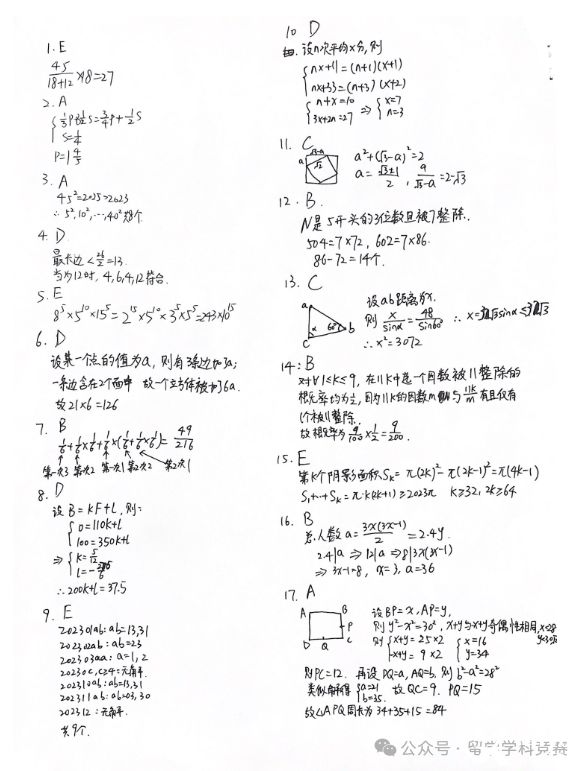 1. E
45/(18+12) ×18=27
2. A
{ 1/3 P+1/2 S = 3/4 P+1/2 S
S=1/4
P=1 4/5
3. A
45²=2025>2023
∴ 5², 10², …, 40² 8个
4. D
最长边 < 26/2 =13.
当为12时, 4, 6, 4, 12 符合.
5. E
8⁵×5¹⁰×15⁵= 2¹⁵×5¹⁰×3⁵×5⁵=243×10¹⁵
6. D
设某一个点的值为a, 则有3条边加3a;
一条边含在2个面中 故一个立方体被加6a.
故21×6=126
7. B
1/6+1/6×1/6+1/6×(1/6+1/6×1/6)= 49/216
第一次3 第一次2 第一次1 第二次2 第二次1
8. D
设B=kF+l, 则:
{ 0=110k+l
100=350k+l
⇒ { k=5/12
∴200k+l=37.5
9. E
202301ab: ab=13,31
202302ab: ab=23
202303aa: a=1, 2
202310ab: ab=13,31
202311ab: ab=03, 30
202312: 无解.
共9个.
10 D
设n次平均x分, 则
{ nx+11=(n+1)(x+1)
nx+33=(n+3)(x+2)
{ n+x=10
3x+2n=27 ⇒ { x=7
n=3
11. C
a²+(√3-a)²=2
a= (√3±1)/2 , a/(√3-a)=2-√3
12. B.
N是5开头的3位数且被7整除.
504=7×72, 602=7×86.
86-72=14个.
13. C
设ab距离为x.
则 x/sinα = 48/sin60° ∴ x=32√3sinα≤32√3
∴x²=3072
14: B
故概率为 9/100×1/2=9/200.
15. E
第k个阴影面积Sk= π(2k)²-π(2k-1)²=π(4k-1)
S₁+…+Sk=π·k(2k+1)≥2023π k≥32, 2k≥64
16. B
总人数a= 3x(3x-1)/2 =2.4y.
⇒ 3x-1=8, x=3, a=36
17. A
A B
P
D Q C
设BP=x, AP=y,
则y²-x²=30², x+y与x-y奇偶性相同,
则 { x+y=25×2
-x+y=9×2
{ x=16
y=34
则PC=12. 再设DQ=a, AQ=b, 则b²-a²=28²
{ a=21
b=35.
故QC=9. PQ=15
故△APQ周长为34+35+15=84
公众号 · 留学学科竞赛